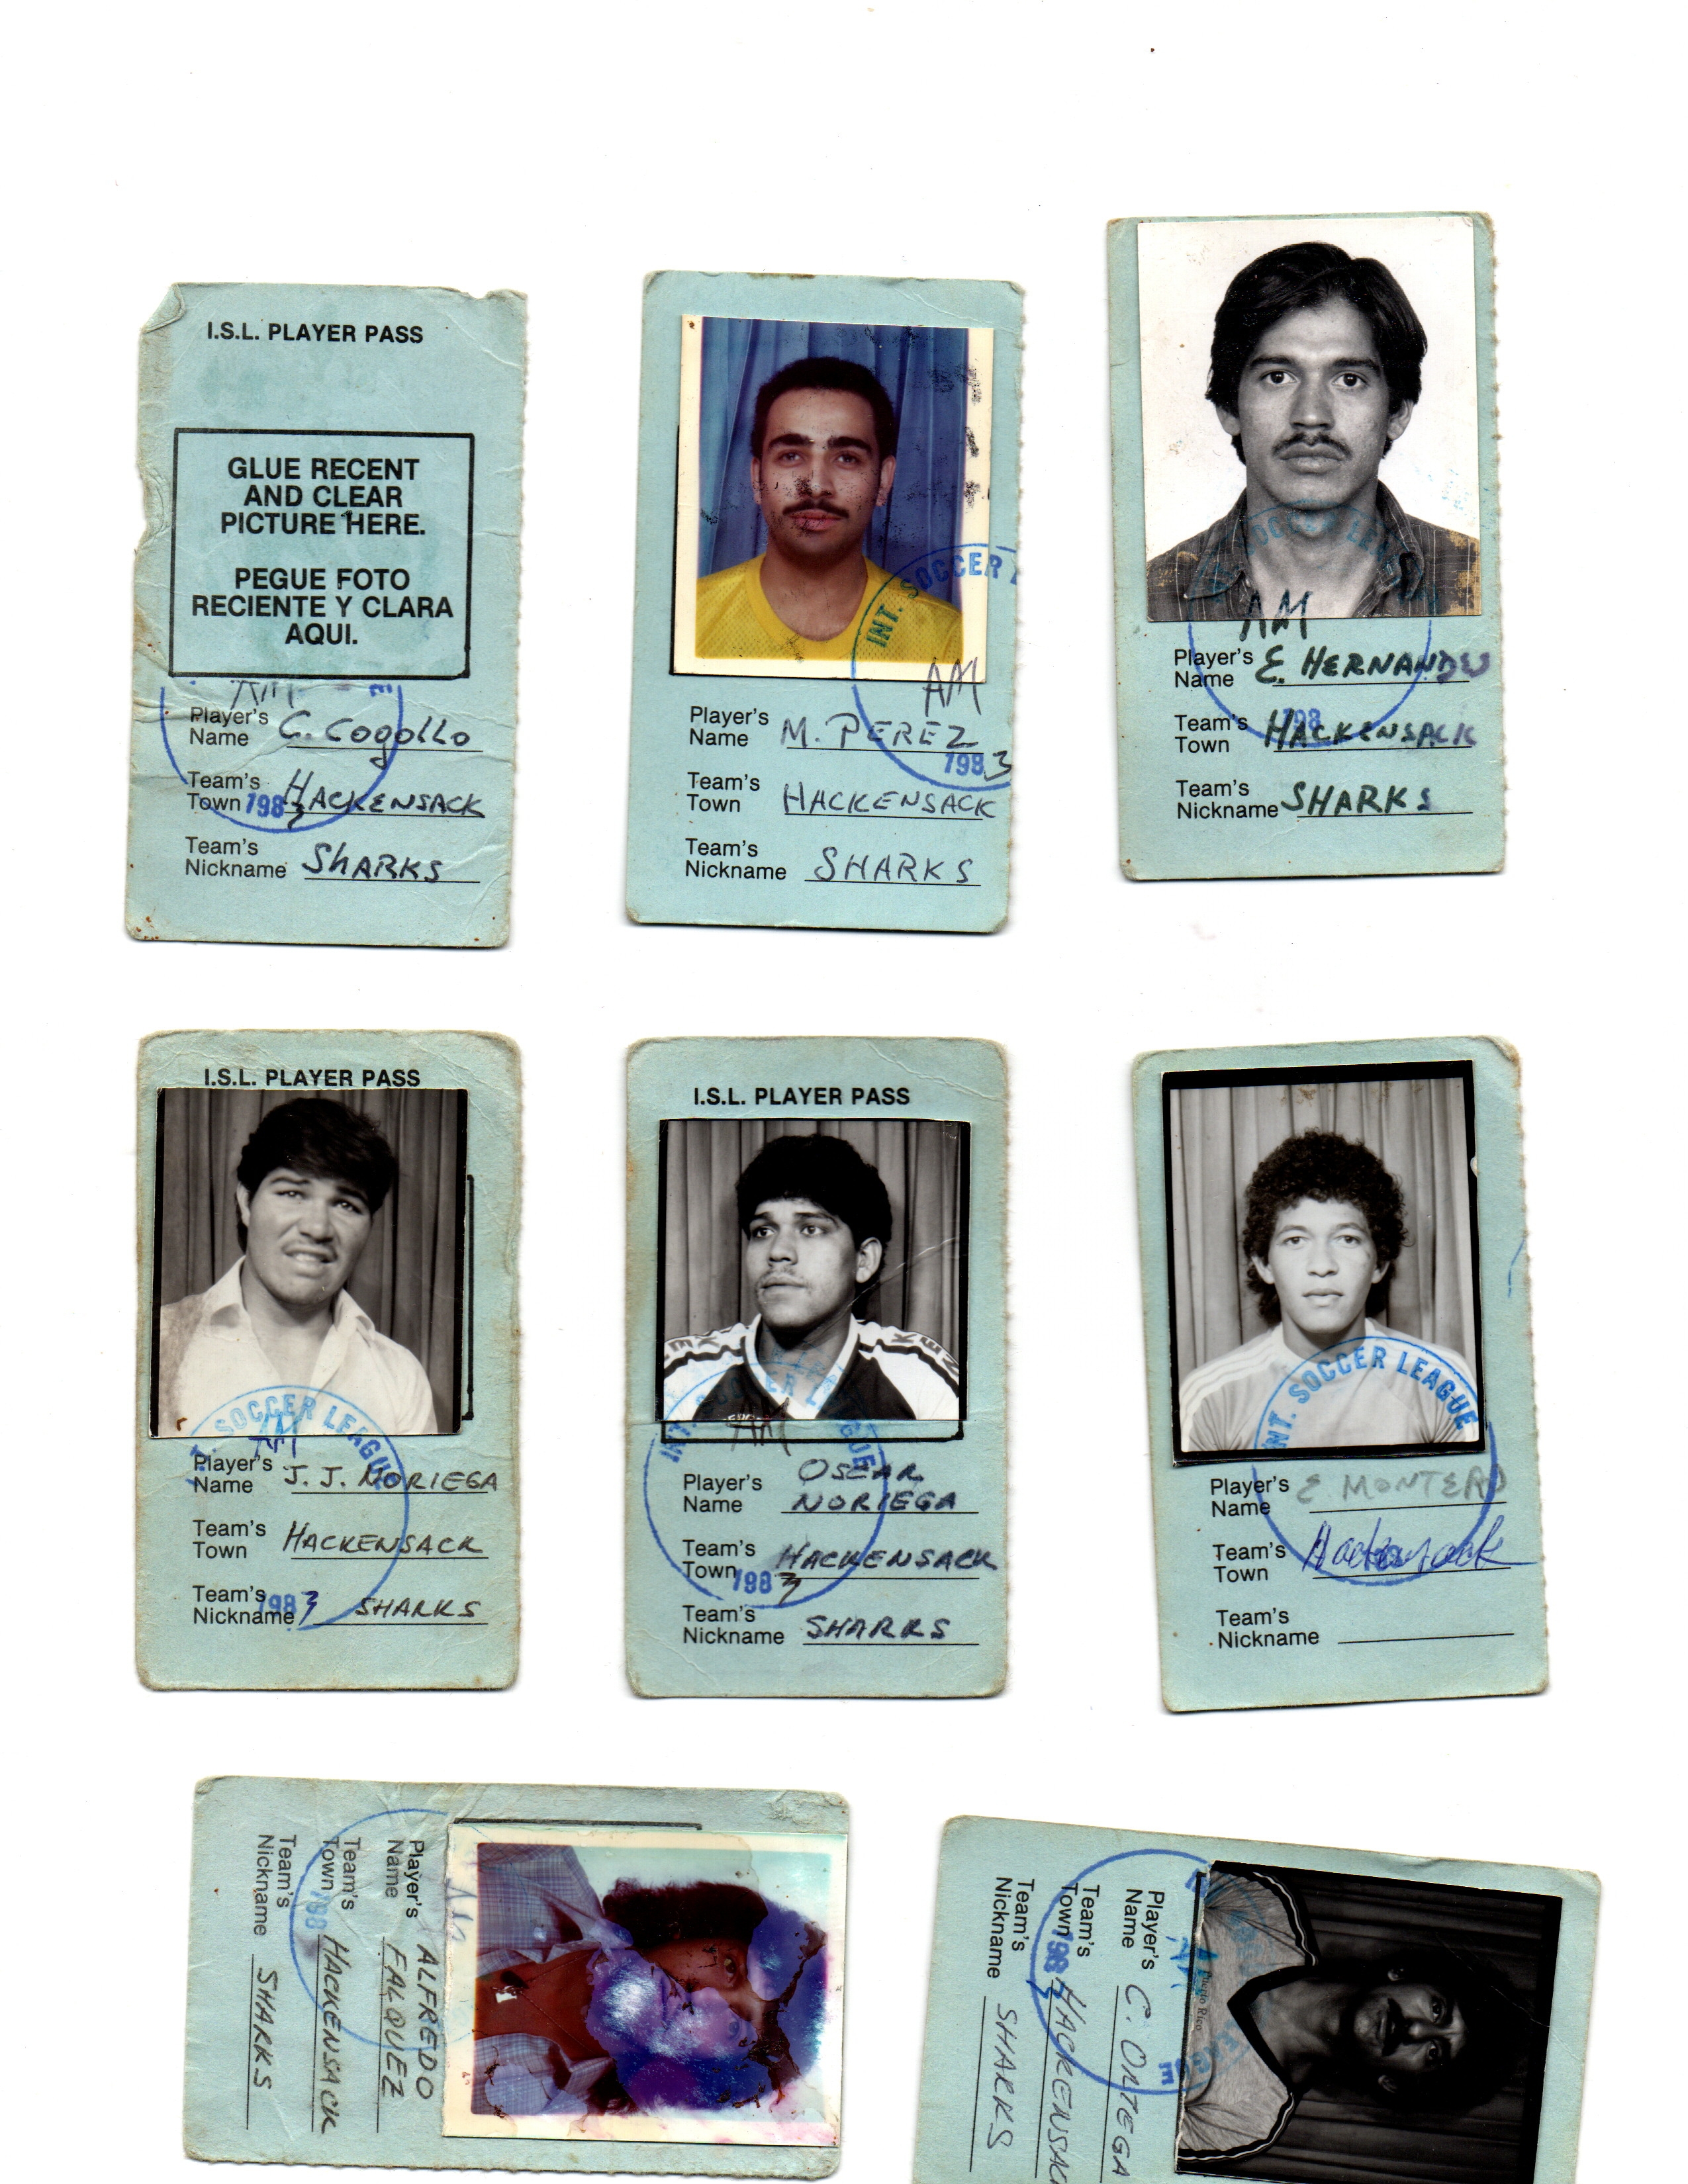 I.S.L. PLAYER PASS
GLUE RECENT
AND CLEAR
PICTURE HERE.
PEGUE FOTO
RECIENTE Y CLARA
AQUI.
AM
Player's Name C. Cogollo
Team's Town HACKENSACK
1983
Team's Nickname SHARKS
INT. SOCCER
AM
Player's Name M. PEREZ
1983
Team's Town HACKENSACK
Team's Nickname SHARKS
SOCCER LEA
AM
Player's Name E. HERNANDEZ
Team's Town HACKENSACK
198
Team's Nickname SHARKS
I.S.L. PLAYER PASS
SOCCER LEAGUE
AM
Player's Name J. J. NORIEGA
Team's Town HACKENSACK
Team's Nickname SHARKS
1983
I.S.L. PLAYER PASS
INT. SOCCER LEAGUE
AM
Player's Name OSCAR
NORIEGA
Team's Town HACKENSACK
1983
Team's Nickname SHARKS
INT. SOCCER LEAGUE
Player's Name E MONTERO
Team's Town Hackensack
Team's Nickname
Player's Name ALFREDO
FALQUEZ
Team's Town HACKENSACK
198
Team's Nickname SHARKS
Puerto Rico
Player's Name C. ORTEGA
Team's Town HACKENSACK
1983
Team's Nickname SHARKS